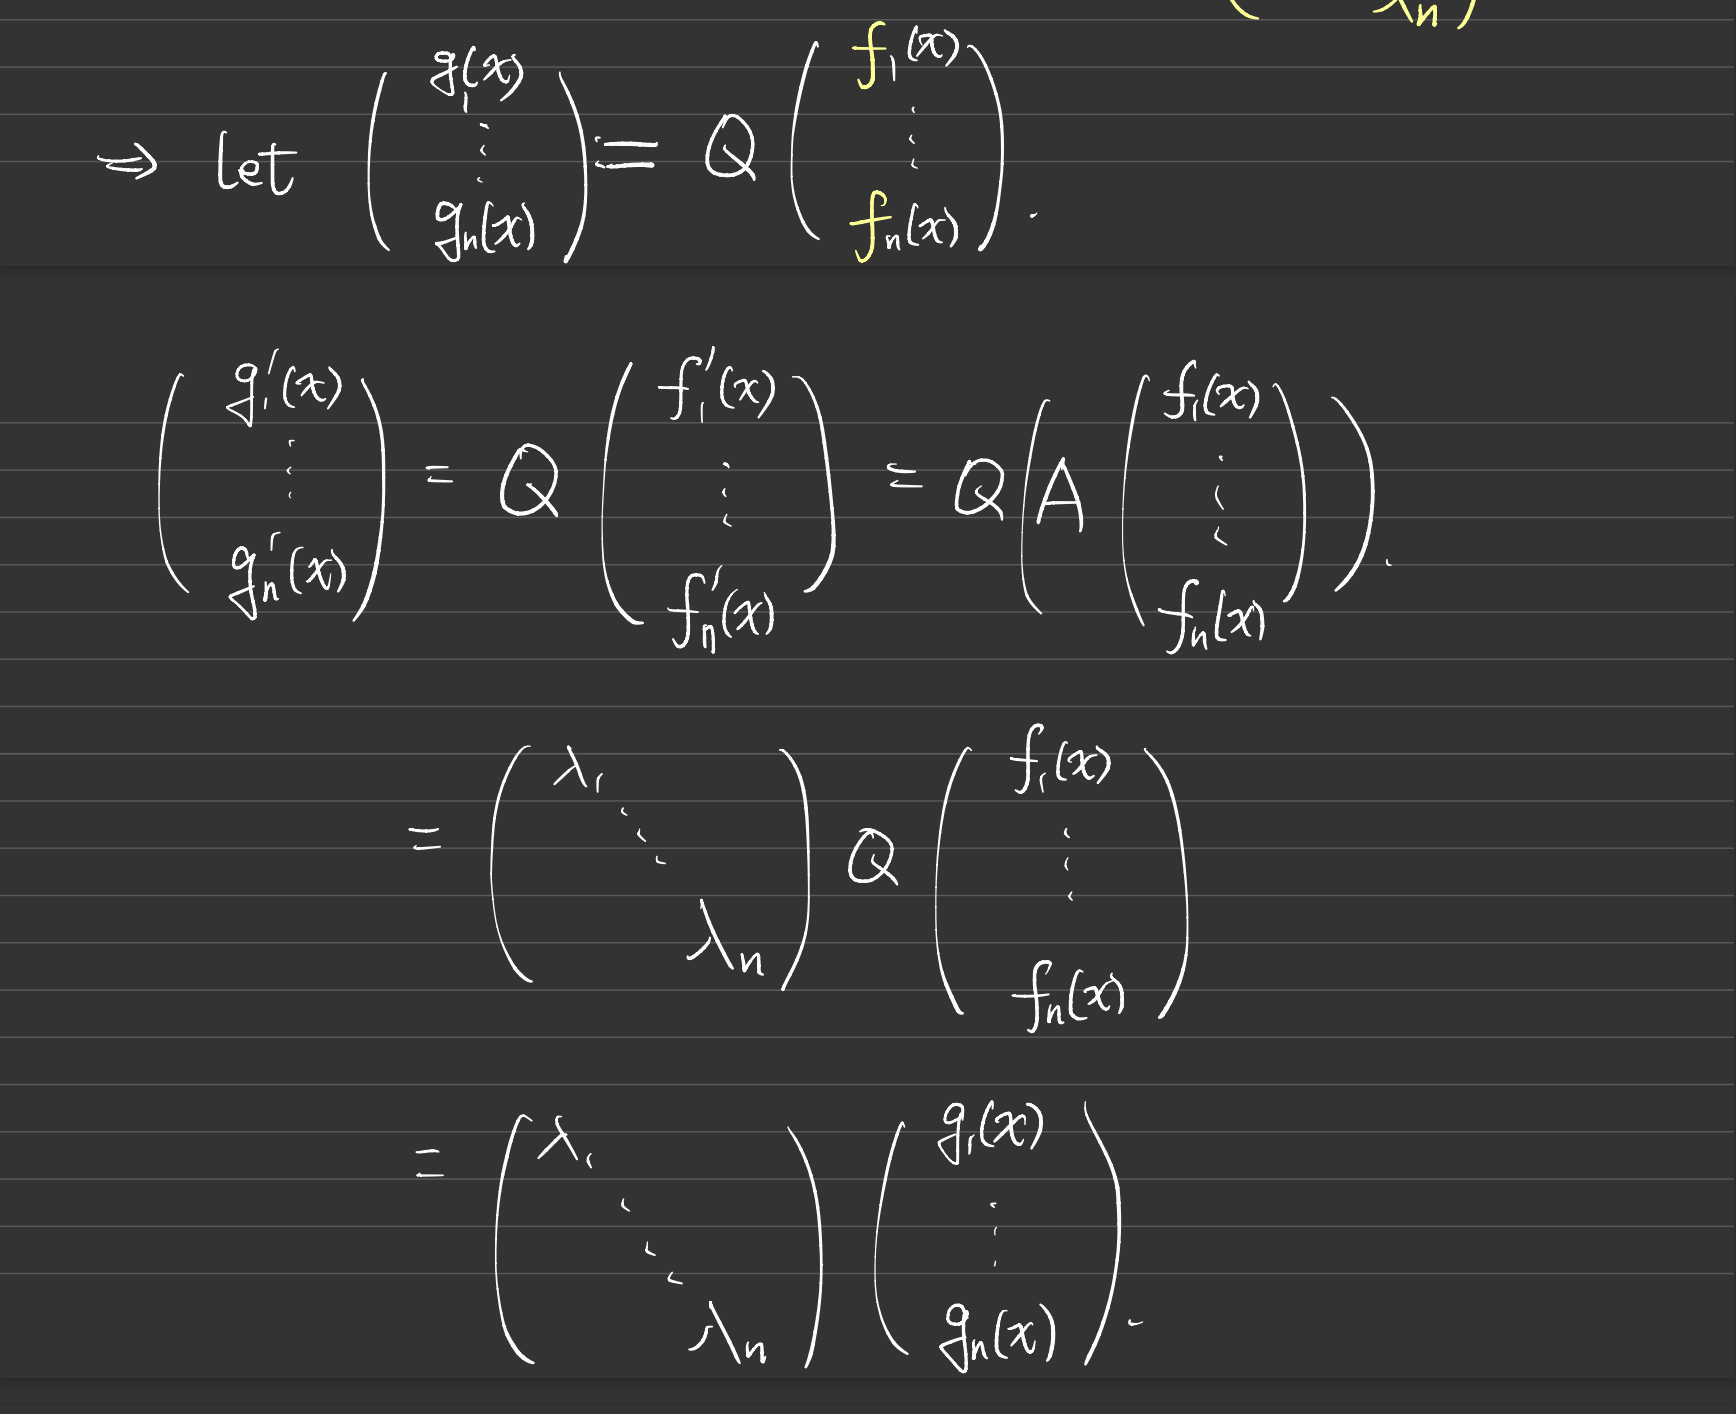 λn )
⇒ let ( g₁(x) ⋮ gn(x) ) := Q ( f₁(x) ⋮ fn(x) ).
( g₁'(x) ⋮ gn'(x) ) = Q ( f₁'(x) ⋮ fn'(x) ) = Q ( A ( f₁(x) ⋮ fn(x) ) ).
= ( λ₁ ⋱ λn ) Q ( f₁(x) ⋮ fn(x) )
= ( λ₁ ⋱ λn ) ( g₁(x) ⋮ gn(x) ).